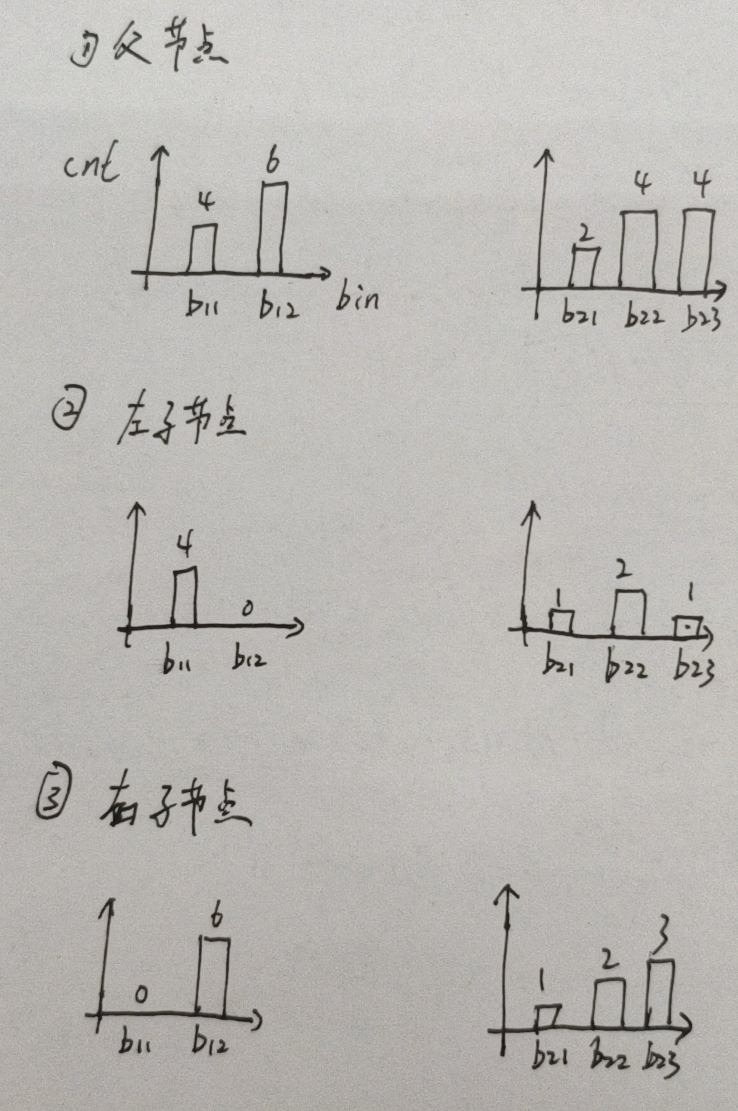 ① 父节点
cnt
4 6
b11 b12 bin
2 4 4
b21 b22 b23
② 左子节点
4 0
b11 b12
1 2 1
b21 b22 b23
③ 右子节点
0 6
b11 b12
1 2 3
b21 b22 b23